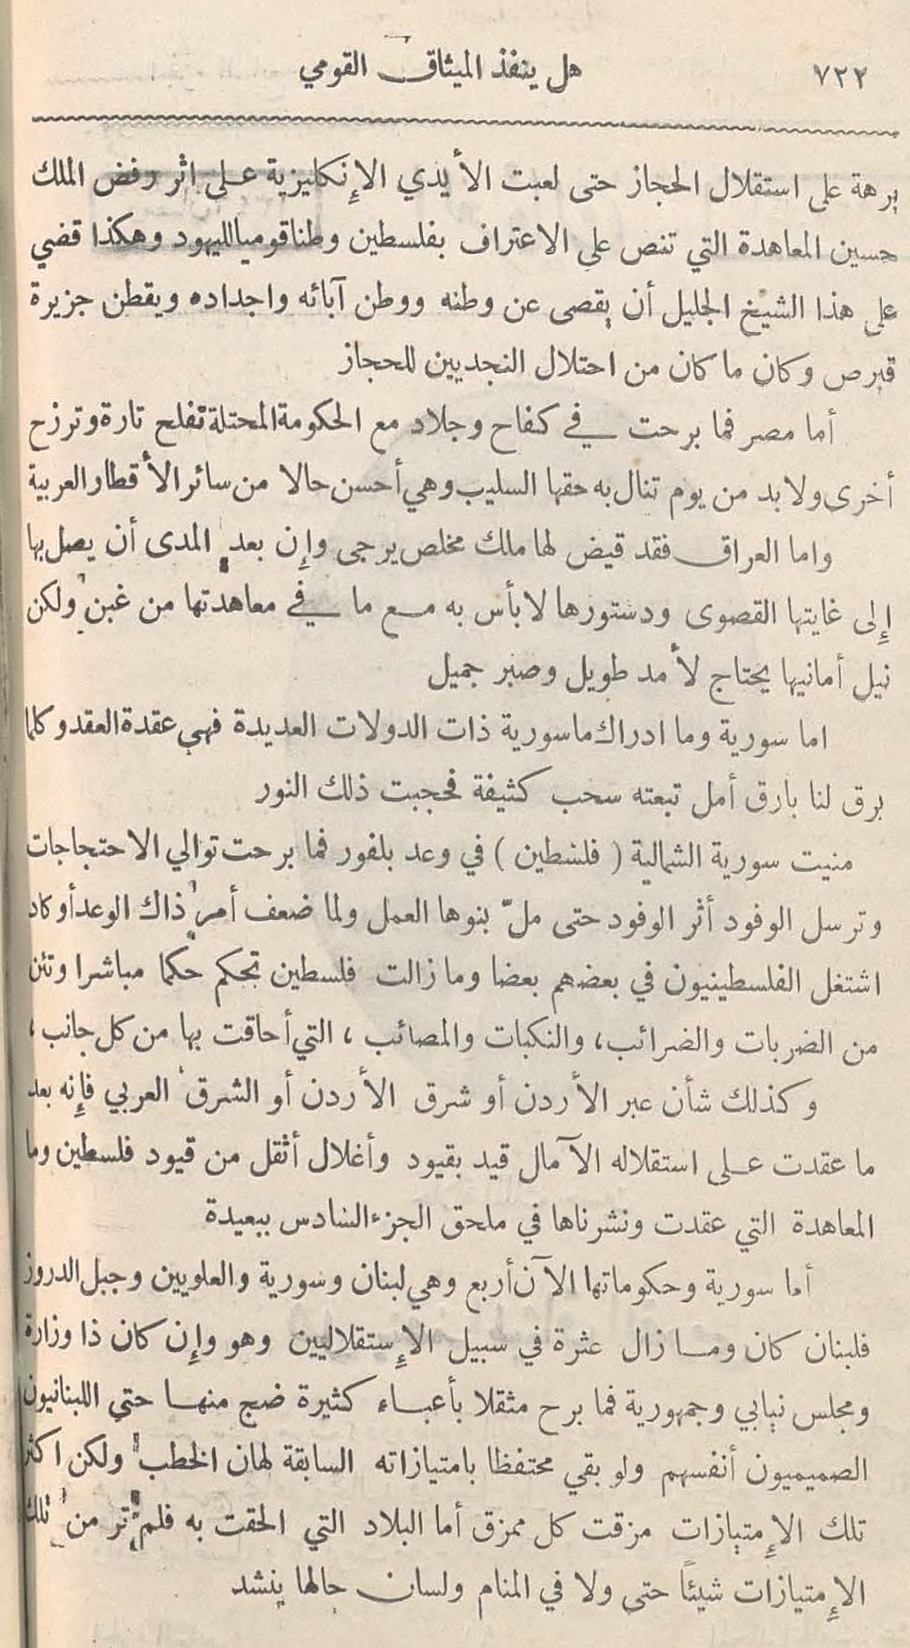 ٧٢٢ هل ينفذ الميثاق القومي
برهة على استقلال الحجاز حتى لعبت الأيدي الإنكليزية على اثر رفض الملك
حسين المعاهدة التي تنص على الاعتراف بفلسطين وطنا قوميا لليهود وهكذا قضي
على هذا الشيخ الجليل أن يقصى عن وطنه ووطن آبائه واجداده ويقطن جزيرة
قبرص وكان ما كان من احتلال النجديين للحجاز
أما مصر فما برحت في كفاح وجلاد مع الحكومة المحتلة تفلح تارة وترزح
أخرى ولابد من يوم تنال به حقها السليب وهي أحسن حالا من سائر الأقطار العربية
واما العراق فقد قيض لها ملك مخلص يرجى وإن بعد المدى أن يصل بها
إلى غايتها القصوى ودستورها لابأس به مع ما في معاهدتها من غبن ولكن
نيل أمانيها يحتاج لأمد طويل وصبر جميل
اما سورية وما ادراك ما سورية ذات الدولات العديدة فهي عقدة العقد وكلما
برق لنا بارق أمل تبعته سحب كثيفة فحجبت ذلك النور
منيت سورية الشمالية ( فلسطين ) في وعد بلفور فما برحت توالي الاحتجاجات
وترسل الوفود أثر الوفود حتى ملّ بنوها العمل ولما ضعف أمر ذاك الوعد أو كاد
اشتغل الفلسطينيون في بعضهم بعضا وما زالت فلسطين تحكم حكما مباشرا وتئن
من الضربات والضرائب، والنكبات والمصائب ، التي أحاقت بها من كل جانب ،
وكذلك شأن عبر الأردن أو شرق الأردن أو الشرق العربي فإنه بعد
ما عقدت على استقلاله الآمال قيد بقيود وأغلال أثقل من قيود فلسطين وما
المعاهدة التي عقدت ونشرناها في ملحق الجزء السادس ببعيدة
أما سورية وحكوماتها الآن أربع وهي لبنان وسورية والعلويين وجبل الدروز
فلبنان كان وما زال عثرة في سبيل الإستقلاليين وهو وإن كان ذا وزارة
ومجلس نيابي وجمهورية فما برح مثقلا بأعباء كثيرة ضج منها حتى اللبنانيون
الصميميون أنفسهم ولو بقي محتفظا بامتيازاته السابقة لهان الخطب ولكن اكثر
تلك الإمتيازات مزقت كل ممزق أما البلاد التي الحقت به فلم تر من تلك
الإمتيازات شيئاً حتى ولا في المنام ولسان حالها ينشد